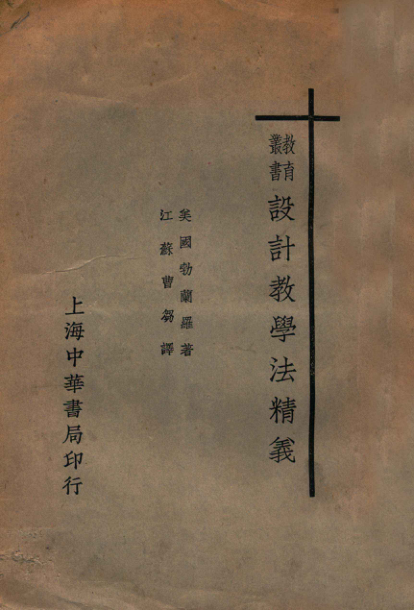 教育
叢書
設計教學法精義
美國勃蘭羅著
江蘇曹芻譯
上海中華書局印行